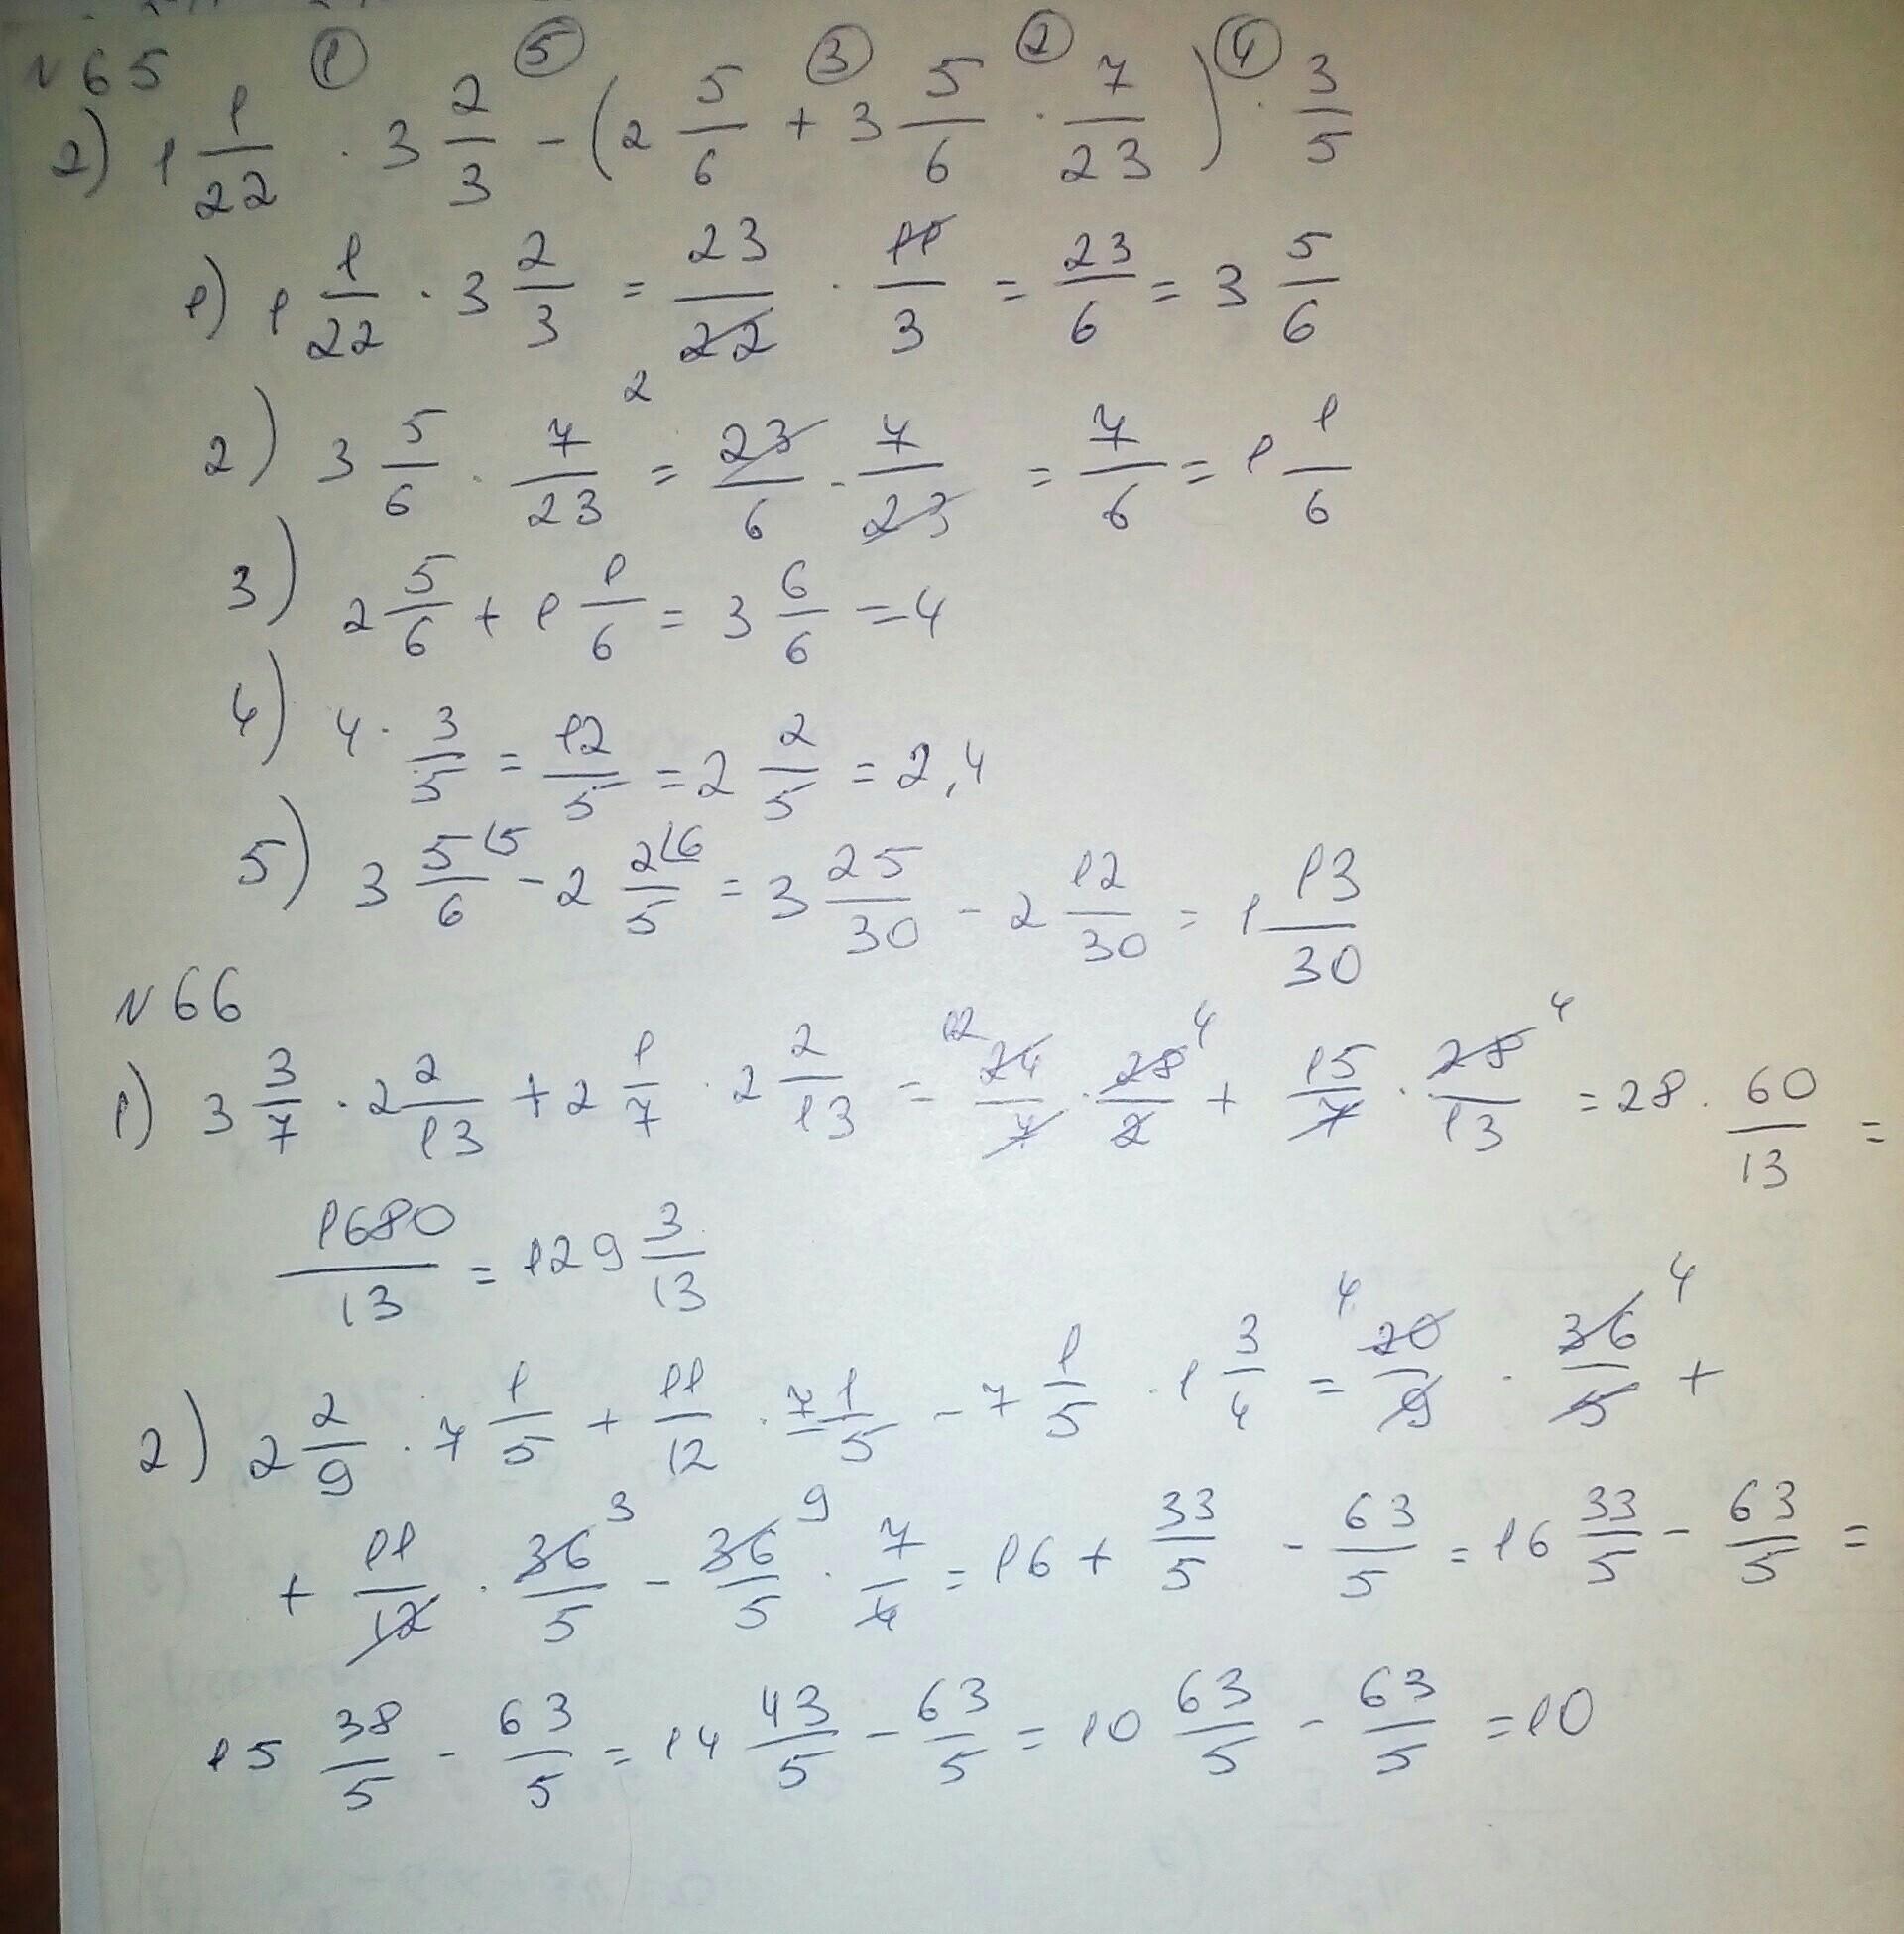 N 65
① ⑤ ③ ② ④
2) 1 1/22 · 3 2/3 - (2 5/6 + 3 5/6 · 7/23) · 3/5
1) 1 1/22 · 3 2/3 = 23/22 · 11/3 = 23/6 = 3 5/6
2
2) 3 5/6 · 7/23 = 23/6 · 7/23 = 7/6 = 1 1/6
3) 2 5/6 + 1 1/6 = 3 6/6 = 4
4) 4 · 3/5 = 12/5 = 2 2/5 = 2,4
5) 3 5/6 (5 - 2 2/5 (6 = 3 25/30 - 2 12/30 = 1 13/30
N 66
1) 3 3/7 · 2 2/13 + 2 1/7 · 2 2/13 = 12 24/7 · 28/2 4 + 15/7 · 28/13 4 = 28 · 60/13 =
1680/13 = 129 3/13
2) 2 2/9 · 7 1/5 + 11/12 · 7 1/5 - 7 1/5 · 1 3/4 = 4 20/9 · 36/5 4 +
+ 11/12 · 36/5 3 - 36/5 9 · 7/4 = 16 + 33/5 - 63/5 = 16 33/5 - 63/5 =
15 38/5 - 63/5 = 14 43/5 - 63/5 = 10 63/5 - 63/5 = 10